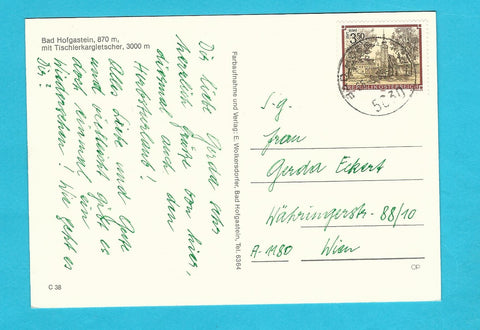 Bad Hofgastein, 870 m,
mit Tischlerkargletscher, 3000 m
Dir liebe Gerda sehr
herzlich Grüße von hier,
diesmal auch den
Herbsturlaub!
Alles Liebe und Gute
und vielleicht gibt es
doch einmal ein
Wiedersehen! Wie geht es
Dir?
C 38
Farbaufnahme und Verlag: E. Wolkersdorfer, Bad Hofgastein, Tel. 6364
3.50
REPUBLIK ÖSTERREICH
5630
S.g.
Frau
Gerda Eckert
Währingerstr. 88/10
A-1180 Wien
OP